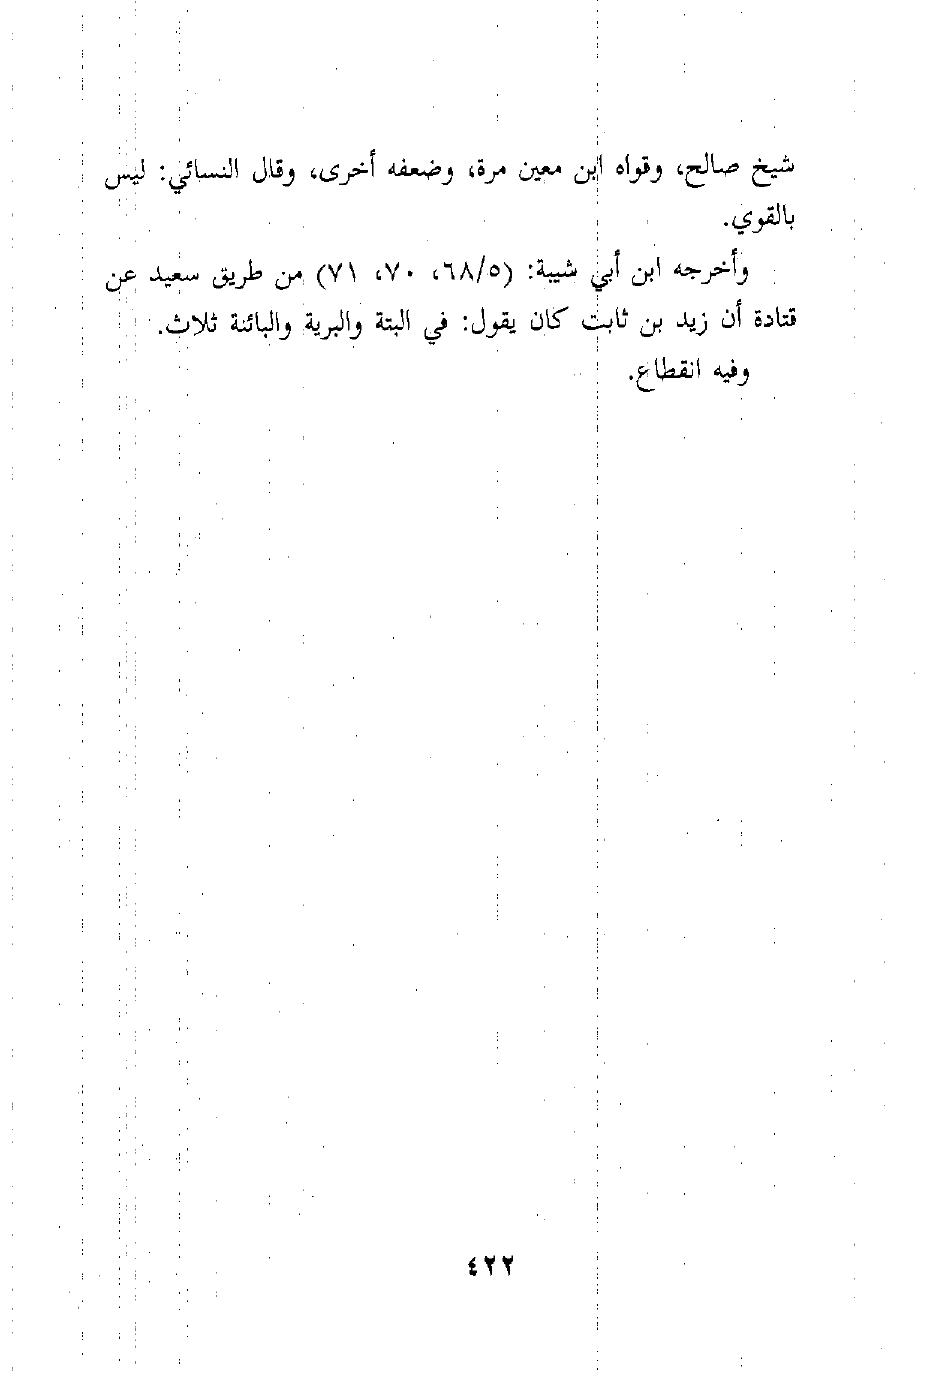 شيخ صالح، وقواه ابن معين مرة، وضعفه أخرى، وقال النسائي: ليس
بالقوي.
وأخرجه ابن أبي شيبة: (٦٨/٥، ٧٠، ٧١) من طريق سعيد عن
قتادة أن زيد بن ثابت كان يقول: في البتة والبرية والبائنة ثلاث.
وفيه انقطاع.
٤٢٢